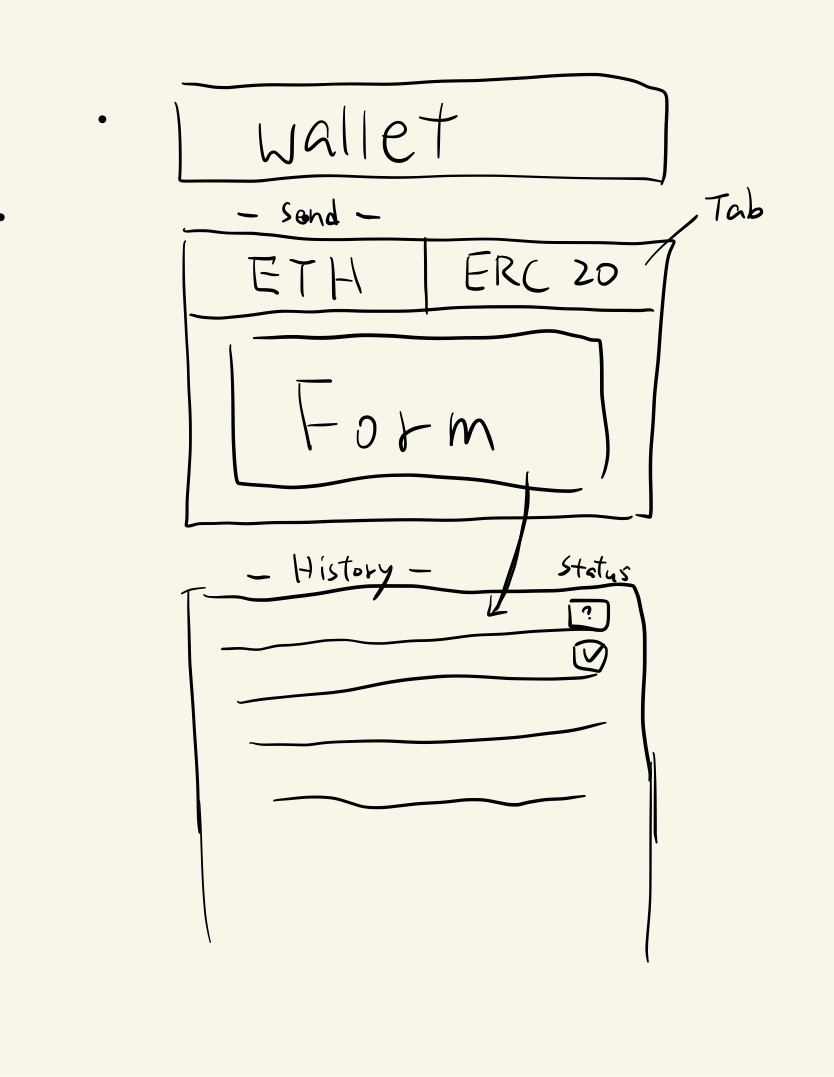 wallet
- Send -
Tab
ETH ERC 20
Form
- History -
Status
?